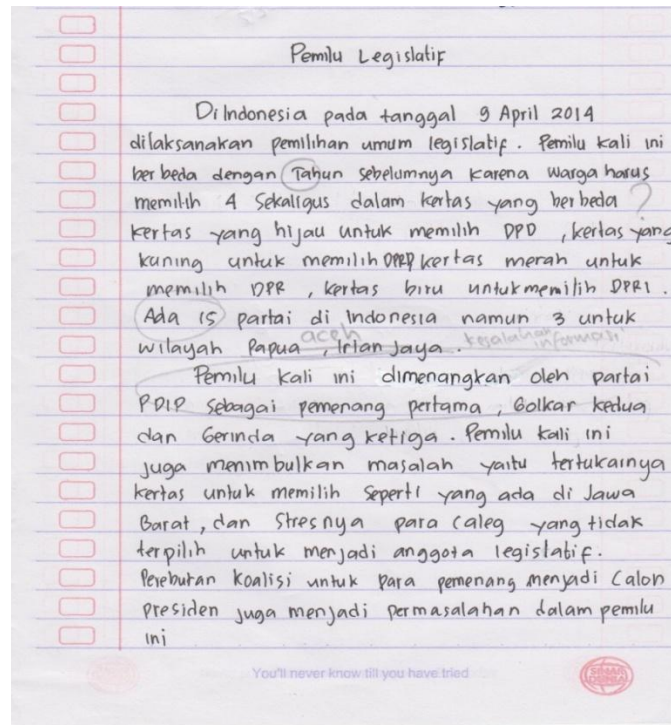 Pemilu Legislatif
Di Indonesia pada tanggal 9 April 2014
dilaksanakan pemilihan umum legislatif. Pemilu kali ini
berbeda dengan Tahun sebelumnya karena warga harus
memilih 4 sekaligus dalam kertas yang berbeda ?
kertas yang hijau untuk memilih DPD , kertas yang
kuning untuk memilih DPRD kertas merah untuk
memilih DPR , kertas biru untuk memilih DPR1 .
Ada 15 partai di Indonesia namun 3 untuk
aceh
wilayah Papua , Irian Jaya . kesalahan informasi
Pemilu kali ini dimenangkan oleh partai
PDIP sebagai pemenang pertama , Golkar kedua
dan Gerinda yang ketiga . Pemilu kali ini
juga menimbulkan masalah yaitu tertukarnya
kertas untuk memilih seperti yang ada di Jawa
Barat , dan stresnya para caleg yang tidak
terpilih untuk menjadi anggota legislatif.
Perebutan koalisi untuk para pemenang menjadi calon
presiden juga menjadi permasalahan dalam pemilu
ini
You'll never know till you have tried
SINAR
DUNIA